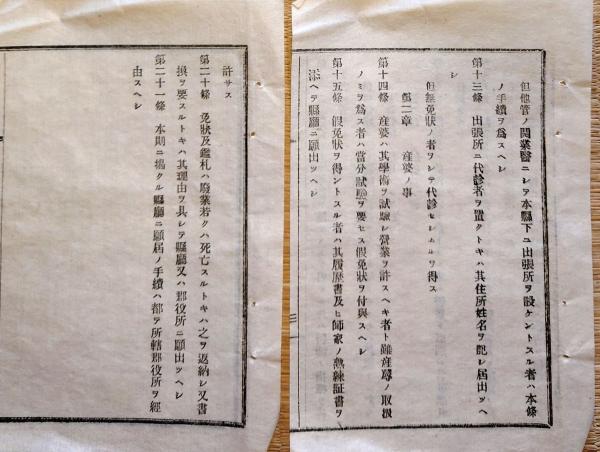 但他管ノ開業醫ニシテ本縣下ニ出張所ヲ設ケントスル者ハ本條
ノ手續ヲ爲スヘシ
第十三條 出張所ニ代診者ヲ置クトキハ其住所姓名ヲ記シ届出ツヘ
シ
但無免狀ノ者ヲシテ代診セシムルヲ得ス
第二章 産婆ノ事
第十四條 産婆ハ其學術ヲ試驗シ營業ヲ許スヘキ者ト雖産ノ取扱
ノミヲ爲ス者ハ當分試驗ヲ要セス假免狀ヲ付與スヘシ
第十五條 假免狀ヲ得ントスル者ハ其履歴書及ヒ師家ノ熟練証書ヲ
添ヘテ縣廳ニ願出ツヘシ
三
許サス
第二十條 免狀及鑑札ハ廢業若クハ死亡スルトキハ之ヲ返納シ又書
換ヲ要スルトキハ其理由ヲ具シテ縣廳又ハ郡役所ニ願出ツヘシ
第二十一條 本則ニ揭クル縣廳ニ願届ノ手續ハ都テ所轄郡役所ヲ經
由スヘシ